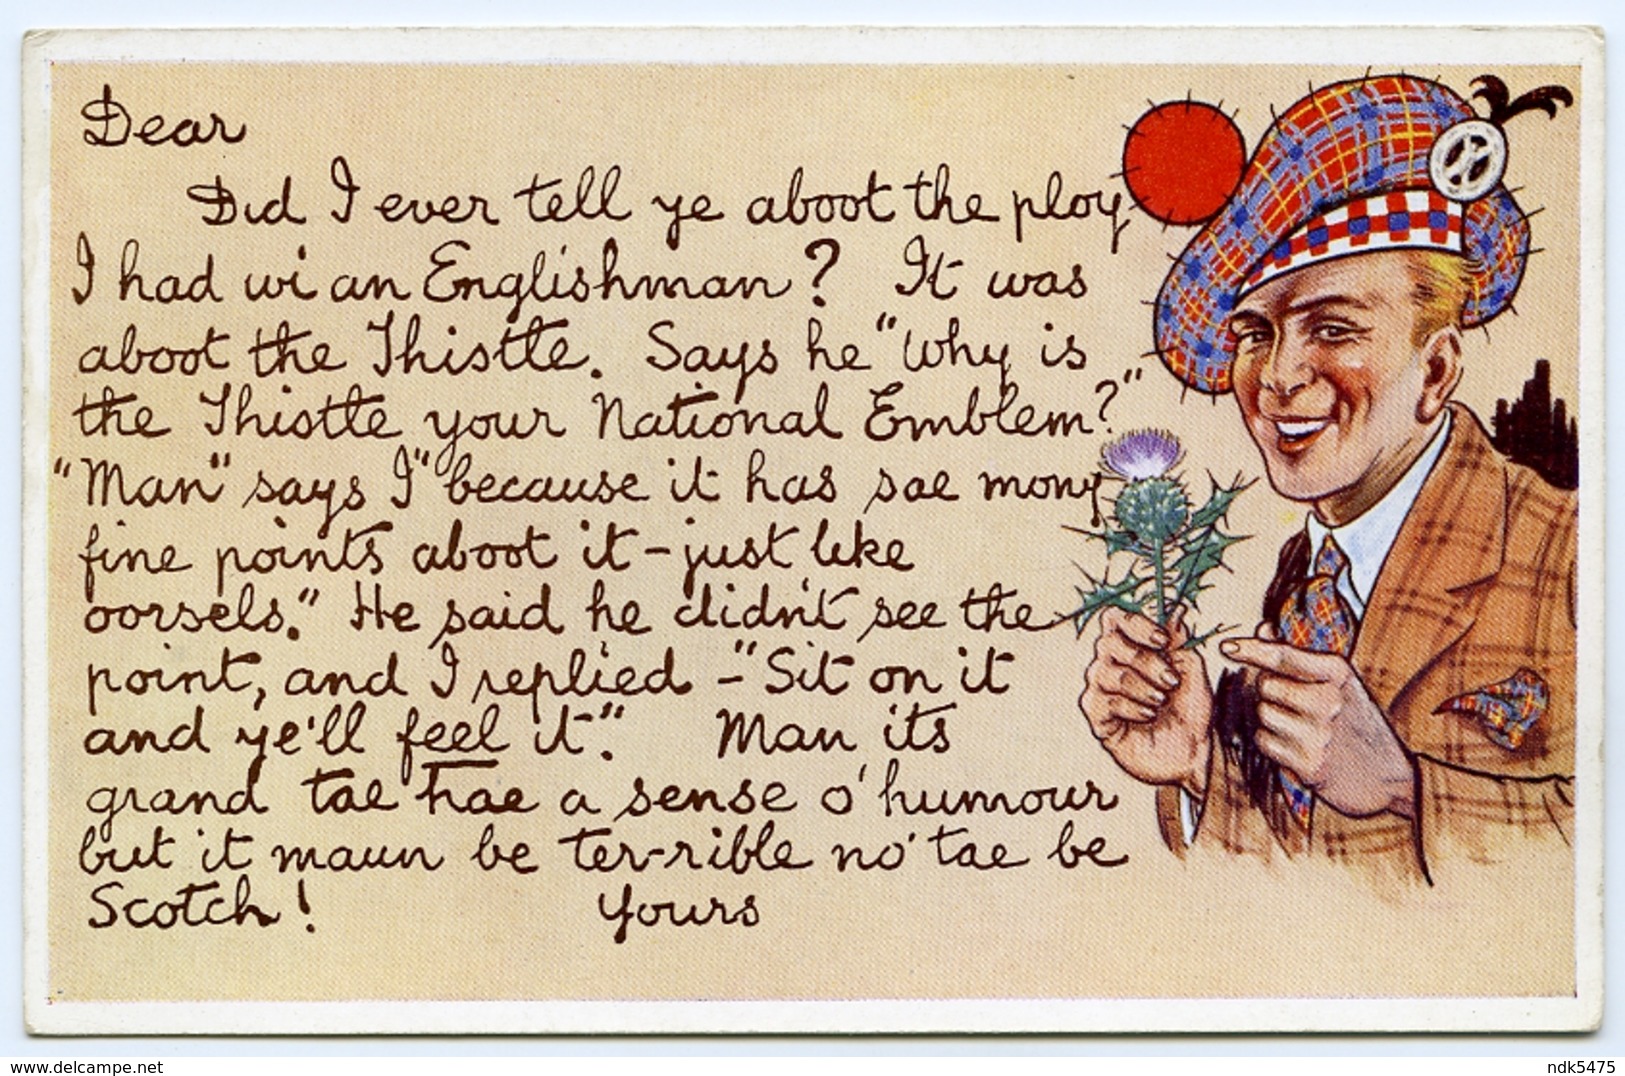 Dear
Did I ever tell ye aboot the ploy
I had wi' an Englishman? It was
aboot the Thistle. Says he "Why is
the Thistle your National Emblem?"
"Man" says I "because it has sae mony
fine points aboot it - just like
oorsels." He said he didn't see the
point, and I replied - "Sit on it
and ye'll feel it". Man its
grand tae hae a sense o' humour
but it maun be ter-rible no' tae be
Scotch! Yours
delcampe.net
ndk5475